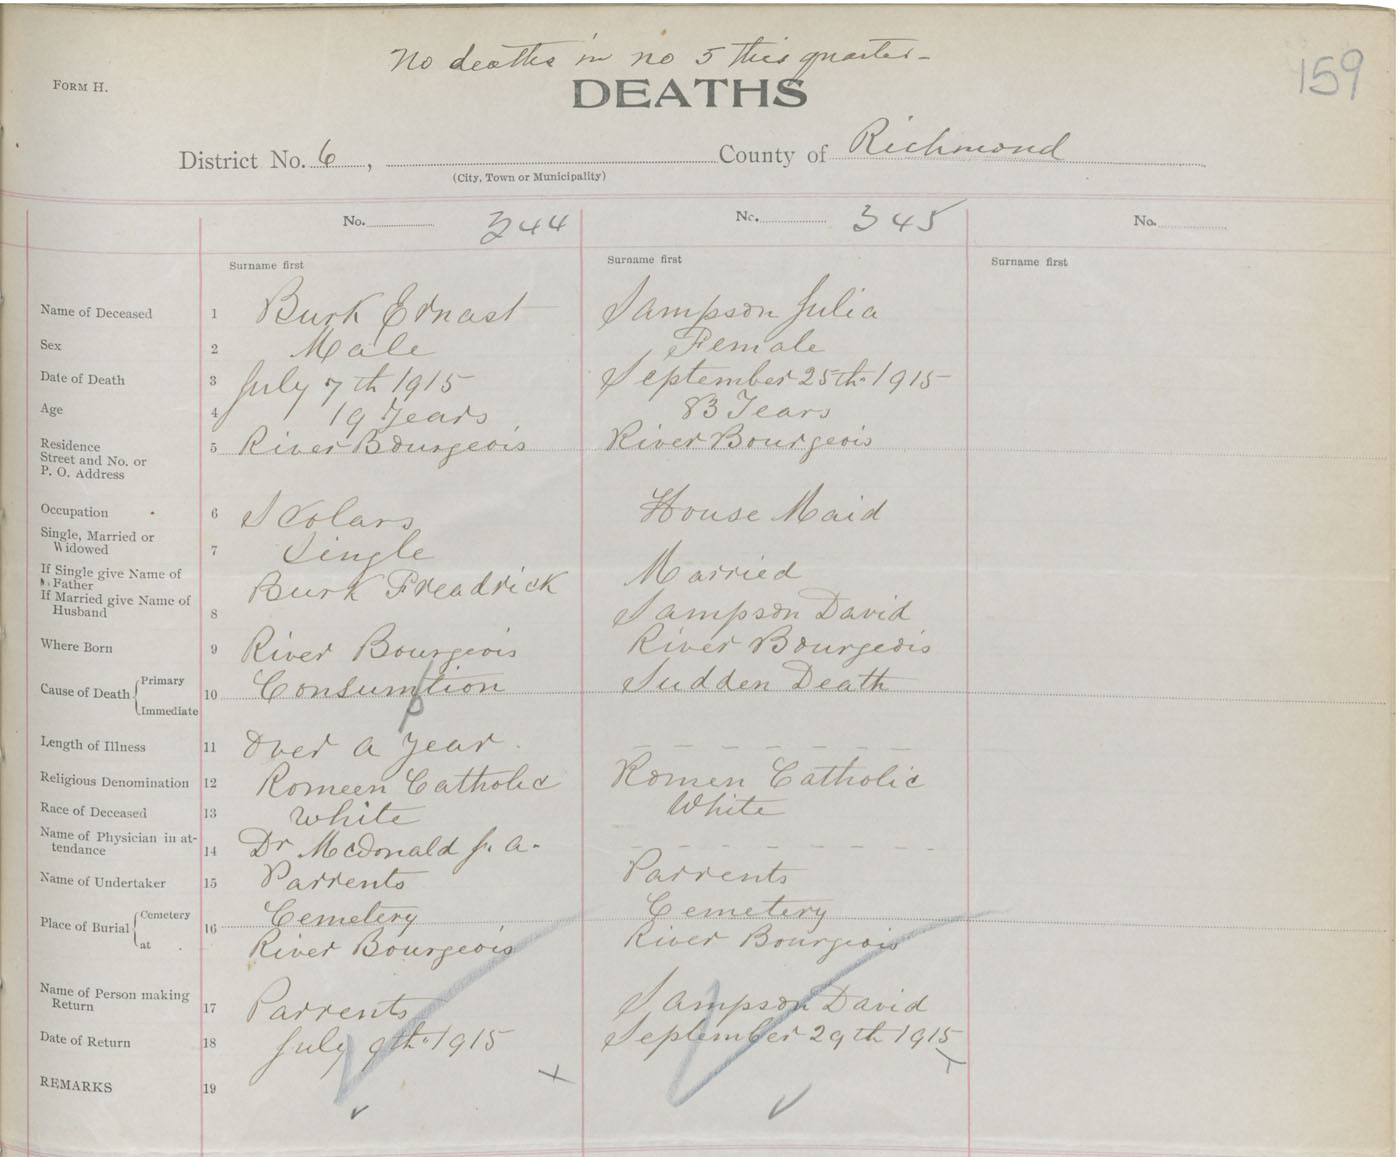 No deaths in no 5 this quarter-
159
FORM H.
DEATHS
District No. 6 , County of Richmond
(City, Town or Municipality)
No. 344 No. 345 No.
Surname first Surname first Surname first
Name of Deceased 1 Burk Ernast Sampson Julia
Sex 2 Male Female
Date of Death 3 July 7th 1915 September 25th 1915
Age 4 19 Years 83 Years
Residence Street and No. or P. O. Address 5 River Bourgeois River Bourgeois
Occupation 6 Scolars House Maid
Single, Married or Widowed 7 Single Married
If Single give Name of Father If Married give Name of Husband 8 Burk Freadrick Sampson David
Where Born 9 River Bourgeois River Bourgeois
Cause of Death Primary Immediate 10 Consumption Sudden Death
Length of Illness 11 Over a year. – – – – – – –
Religious Denomination 12 Romeen Catholic Romen Catholic
Race of Deceased 13 White White
Name of Physician in attendance 14 Dr McDonald J. A. - – – – – – –
Name of Undertaker 15 Parrents Parrents
Place of Burial Cemetery at 16 Cemetery Cemetery
River Bourgeois River Bourgeois
Name of Person making Return 17 Parrents Sampson David
Date of Return 18 July 9th 1915 September 29th 1915
REMARKS 19